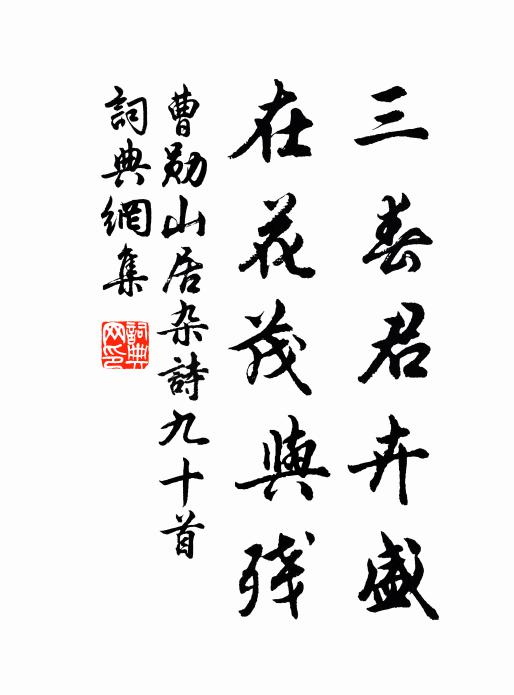 三春君卉盛
在花茂與残
曹勛山居杂詩九十首
詞典網集
詞典網印